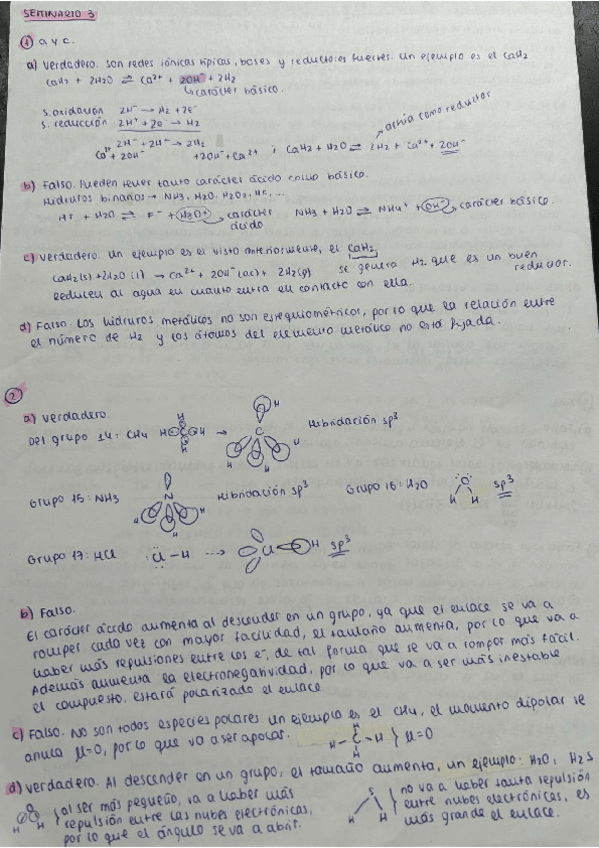 SEMINARIO 3
① a y c.
a) Verdadero. Son redes iónicas típicas, bases y reductores fuertes. Un ejemplo es el CaH2
CaH2 + 2H2O ⇌ Ca2+ + 2OH- + 2H2
↳ carácter básico.
S. oxidación 2H- → H2 + 2e-
S. reducción 2H+ + 2e- → H2
actúa como reductor
2H- + 2H+ → 2H2
Ca2+ + 2OH- + 2OH- + Ca2+ ; CaH2 + H2O ⇌ 2H2 + Ca2+ + 2OH-
b) Falso. Pueden tener tanto carácter ácido como básico.
Hidruros binarios → NH3, H2O, H2O2, HF, ...
HF + H2O ⇌ F- + H3O+ ↳ carácter ácido NH3 + H2O ⇌ NH4+ + OH- ↳ carácter básico.
c) Verdadero. Un ejemplo es el visto anteriormente, el CaH2
CaH2(s) + 2H2O (l) → Ca2+ + 2OH-(ac) + 2H2(g) se genera H2 que es un buen reductor.
Reducen al agua en cuanto entra en contacto con ella.
d) Falso. Los hidruros metálicos no son estequiométricos, por lo que la relación entre
el número de H2 y los átomos del elemento metálico no está fijada.
②
a) Verdadero.
Del grupo 14: CH4 H C H H H → C H H H H Hibridación sp3
Grupo 15: NH3 N H H H Hibridación sp3 Grupo 16: H2O O H H sp3
Grupo 17: HCl Cl - H → Cl H sp3
b) Falso.
El carácter ácido aumenta al descender en un grupo, ya que el enlace se va a
romper cada vez con mayor facilidad, el tamaño aumenta, por lo que va a
haber más repulsiones entre los e-, de tal forma que se va a romper más fácil.
Además aumenta la electronegatividad, por lo que va a ser más inestable
el compuesto, estará polarizado el enlace
c) Falso. No son todos especies polares un ejemplo es el CH4, el momento dipolar se
anula μ=0, por lo que va a ser apolar. H - C - H H H } μ=0
d) Verdadero. Al descender en un grupo, el tamaño aumenta, un ejemplo: H2O, H2S
O H H { al ser más pequeño, va a haber más
repulsión entre las nubes electrónicas,
por lo que el ángulo se va a abrir.
S H H { no va a haber tanta repulsión
entre nubes electrónicas, es
más grande el enlace.